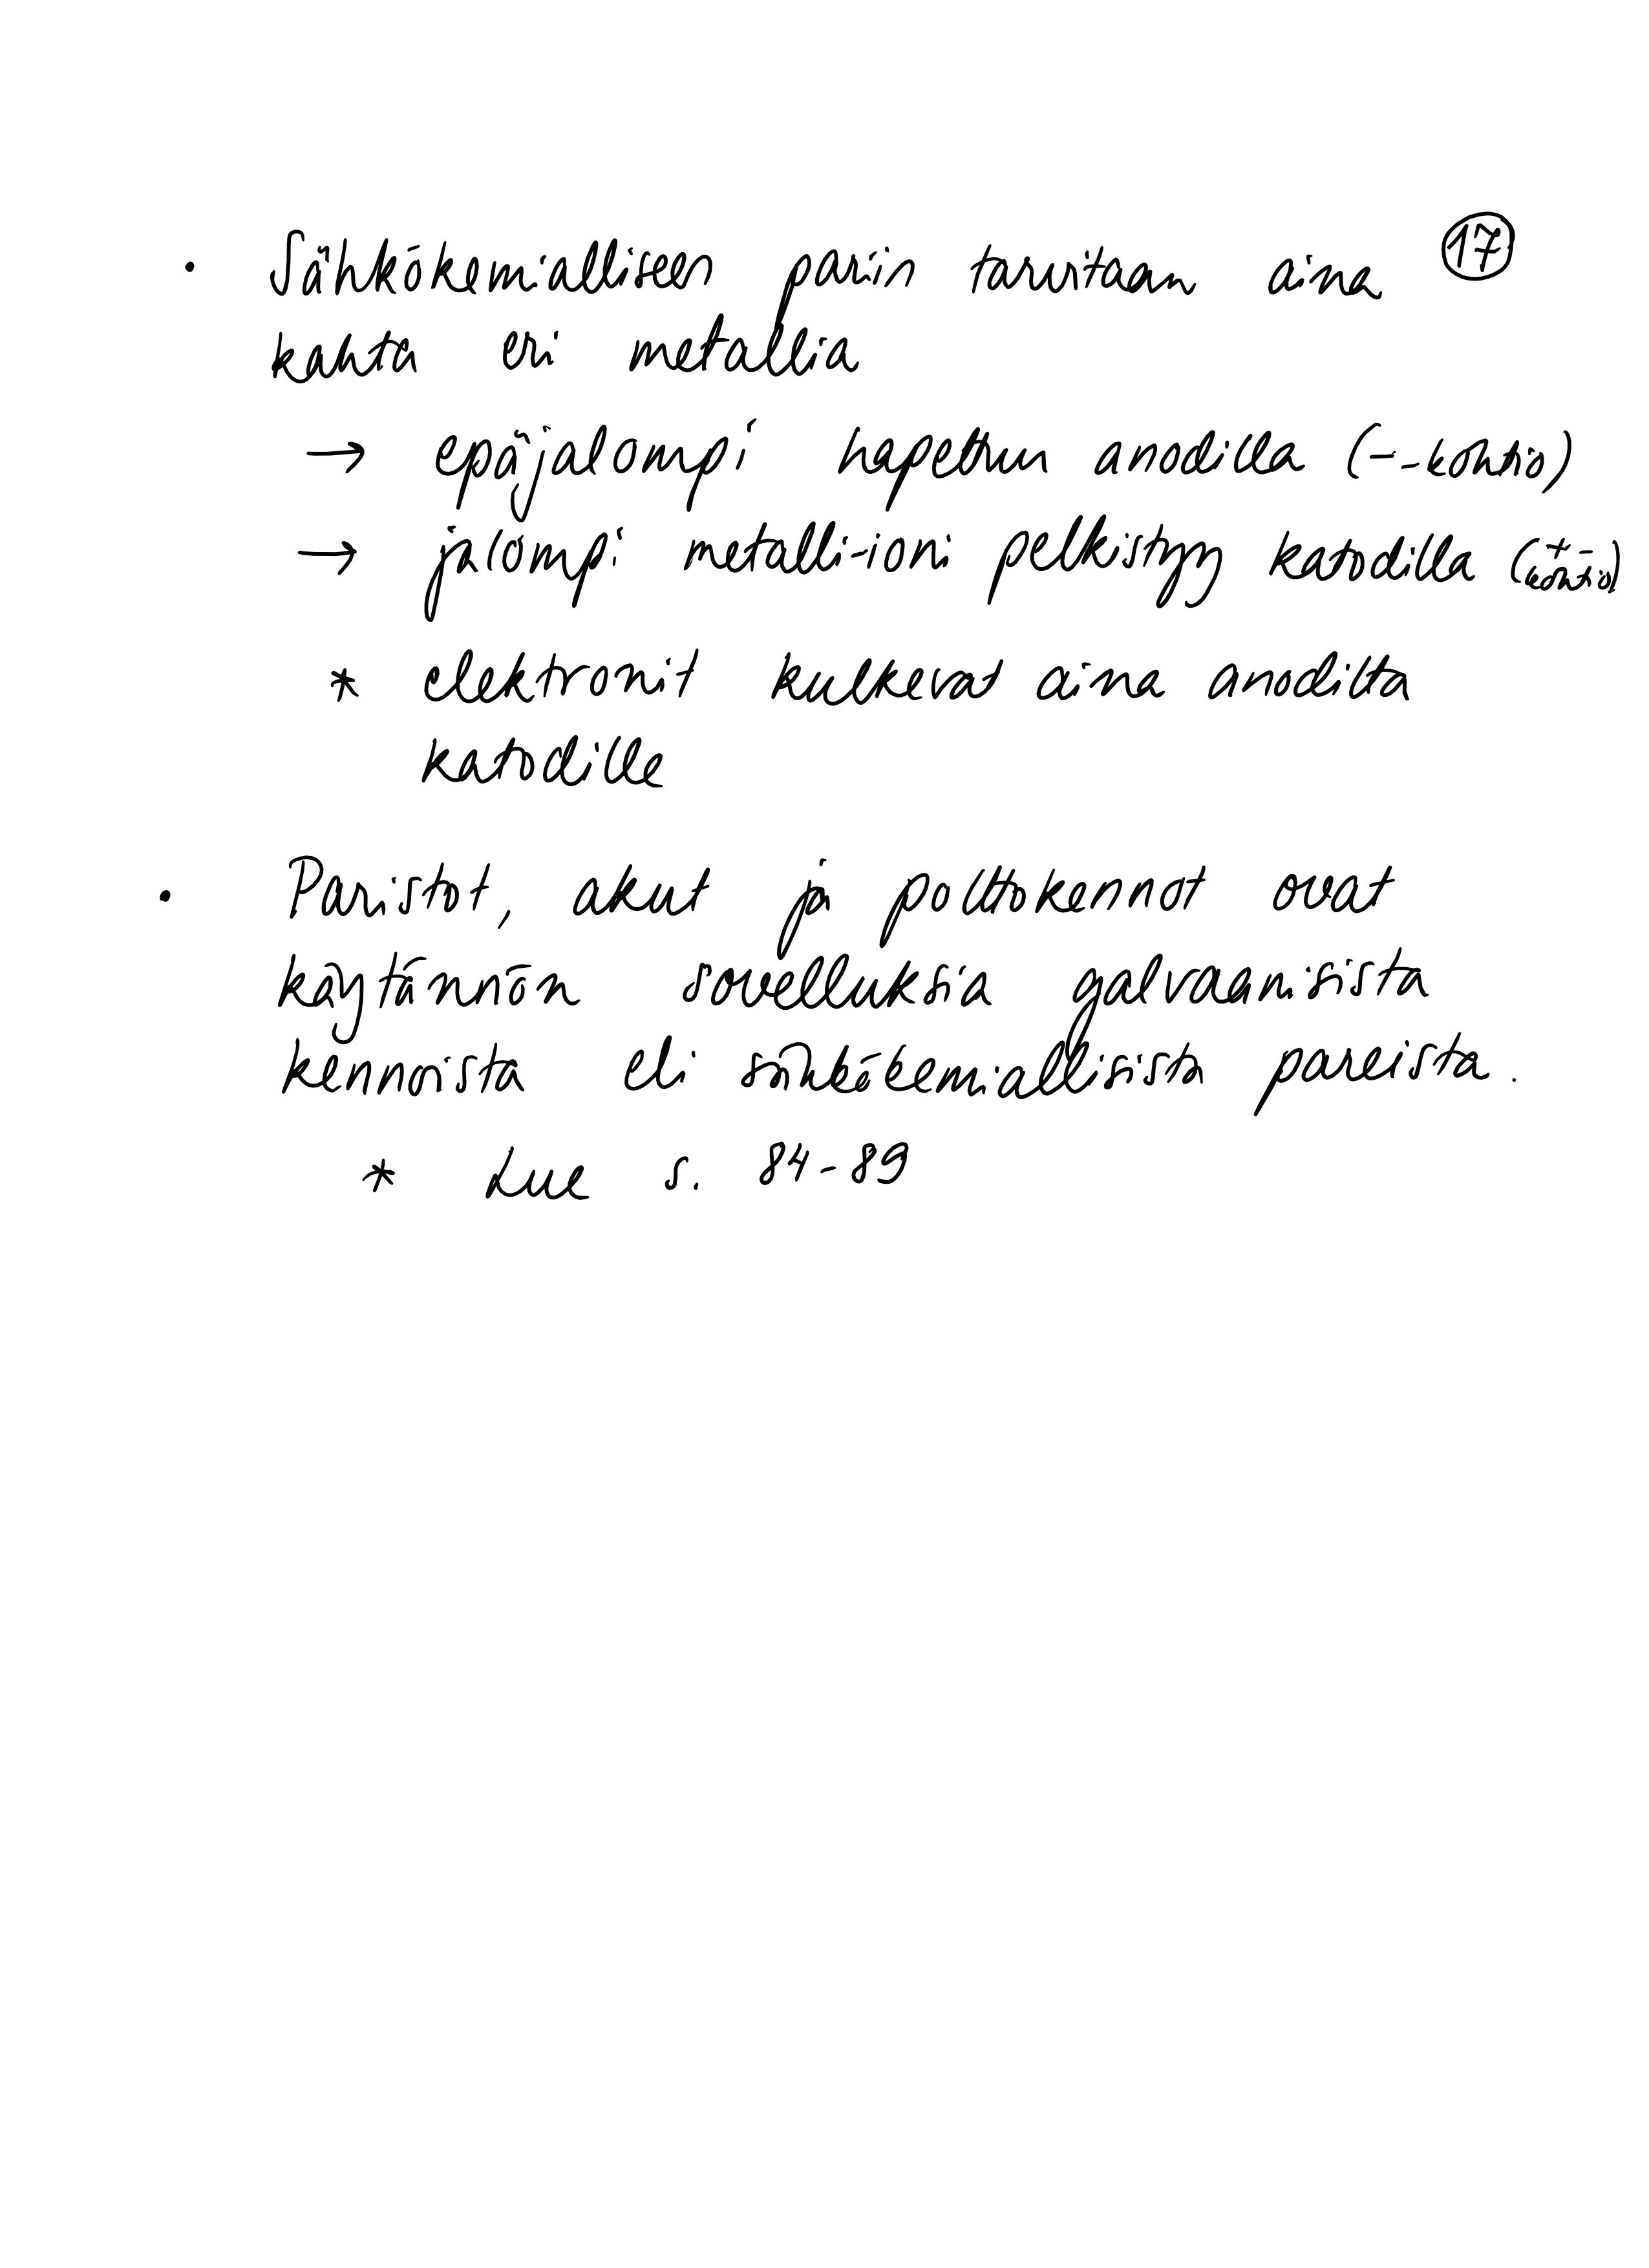 17
• Sähkökemialliseen pariin tarvitaan aina
kahta eri metallia
→ epäjalompi hapettuu anodilla (−-kohtio)
→ jalompi metalli-ioni pelkistyy katodilla (+-kohtio)
* elektronit kulkevat aina anodilta
katodille
• Paristot, akut ja polttokennot ovat
käytännön sovelluksia galvaanisista
kennoista eli sähkökemiallisista pareista.
* Lue s. 84-89